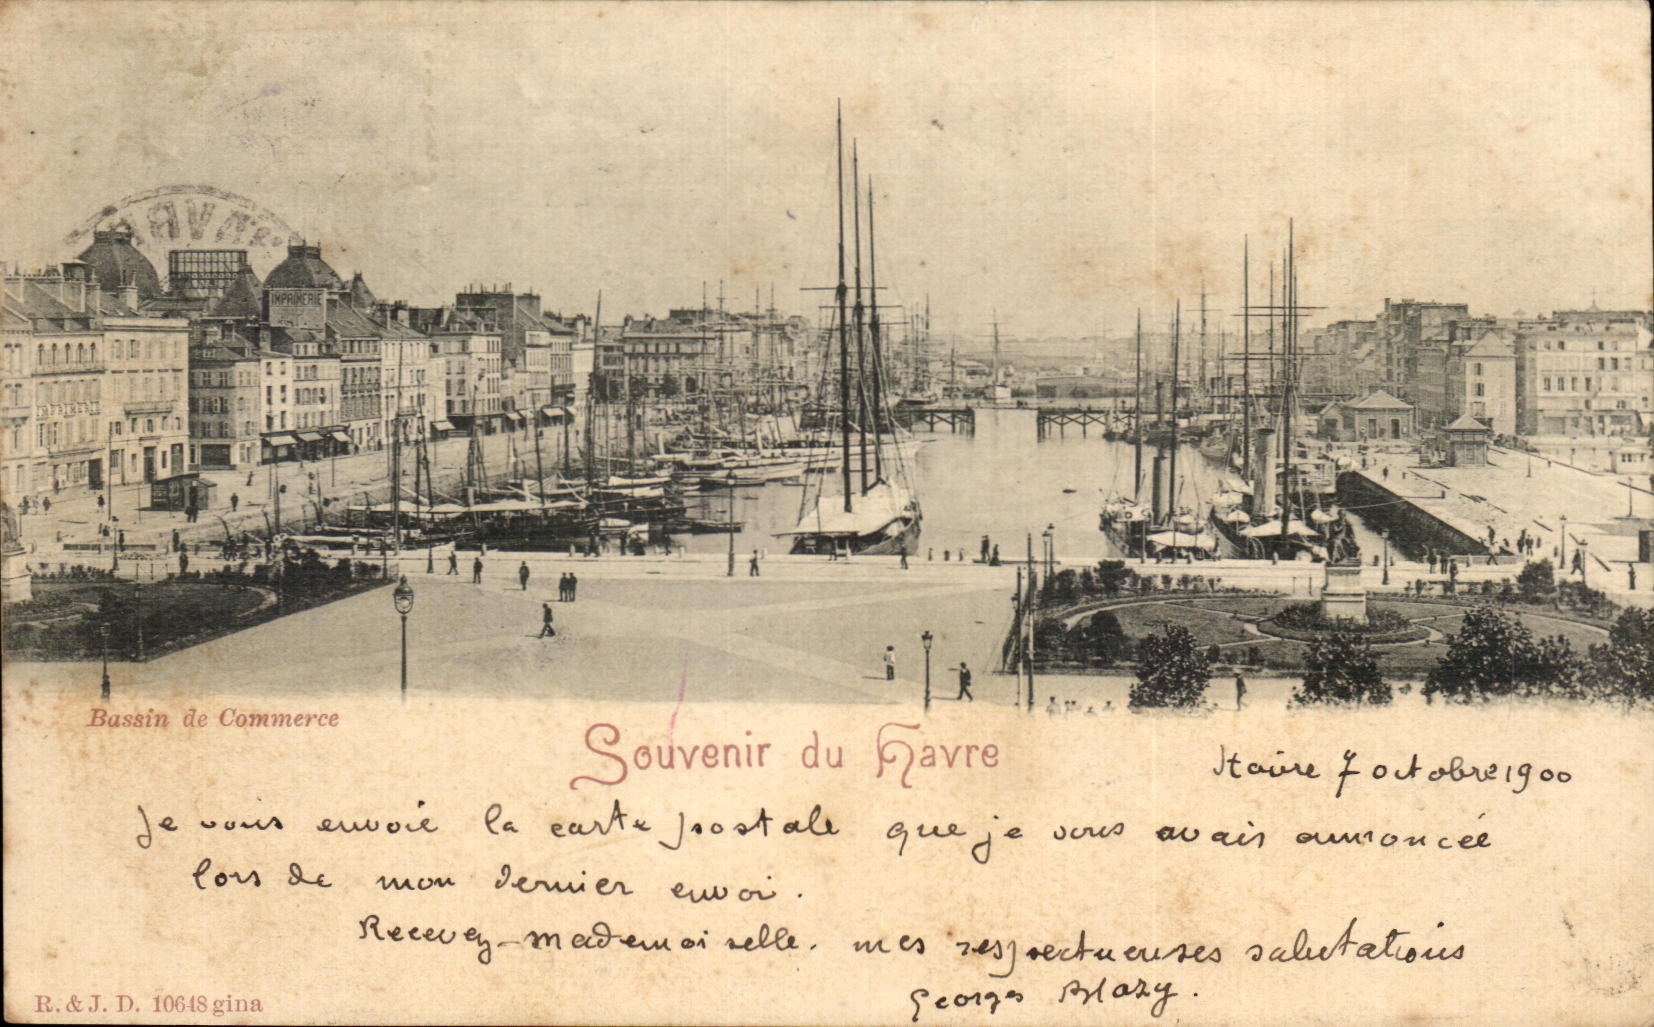 IMPRIMERIE
IMPRIMERIE
Bassin de Commerce
Souvenir du Havre
Havre 7 octobre 1900
Je vous envoie la carte postale que je vous avais annoncée
lors de mon dernier envoi.
Recevez mademoiselle. mes respectueuses salutations
Georges Blazy.
R. & J. D. 10648 gina